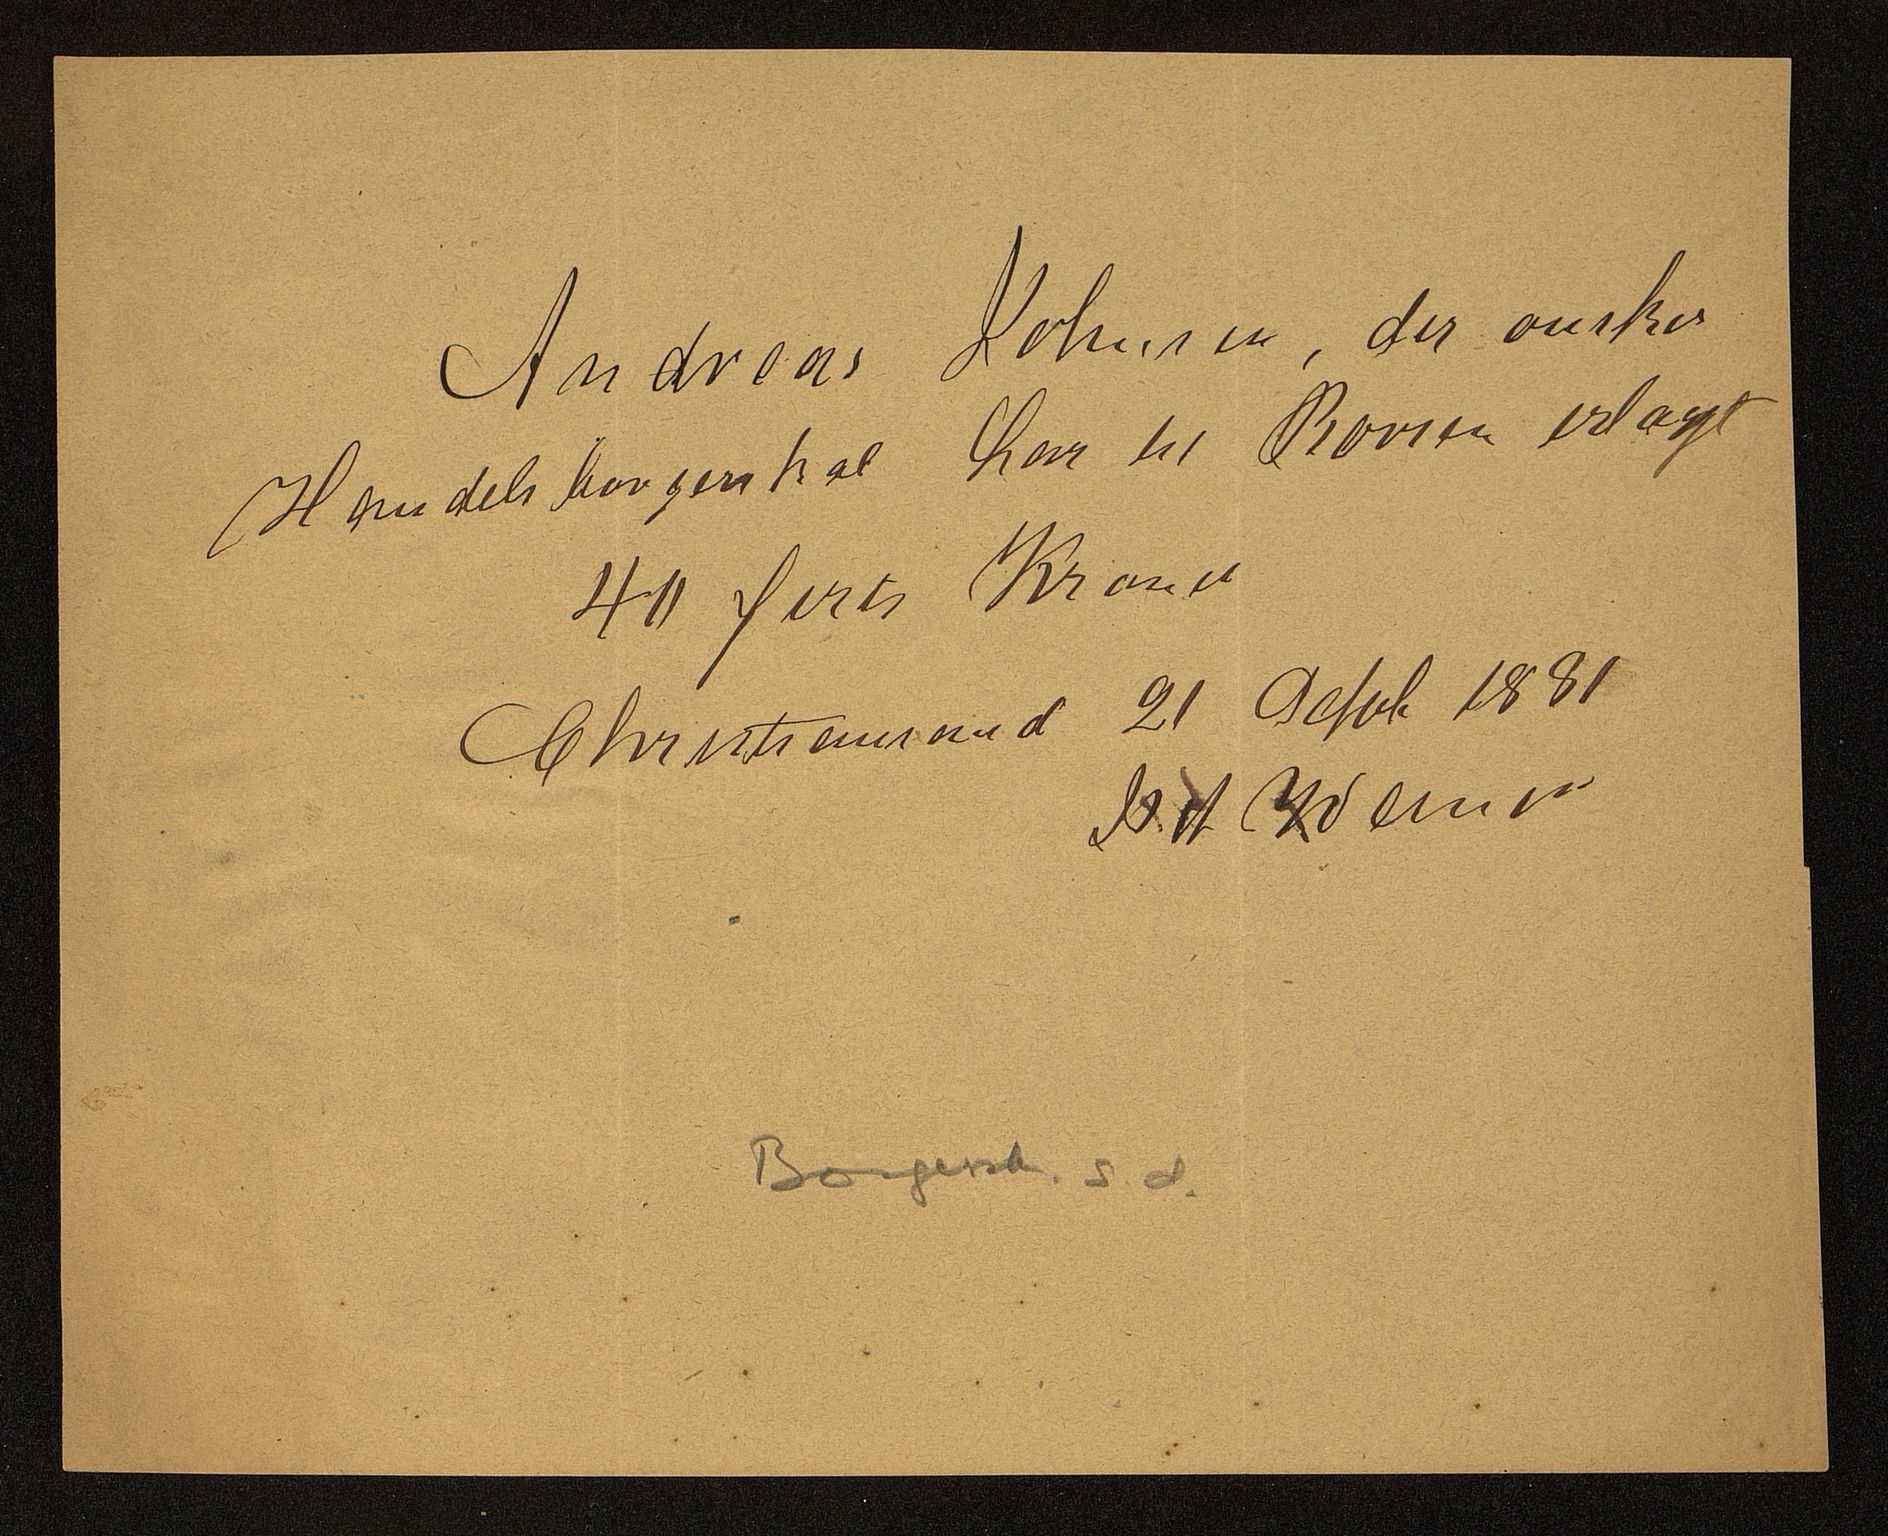 Andreas Johnsen, der onsker
Handelsborgerskab har til Byen erlagt
40 firti Kroner
Christiansand 21 Octob 1881
Borgersk. s. d.